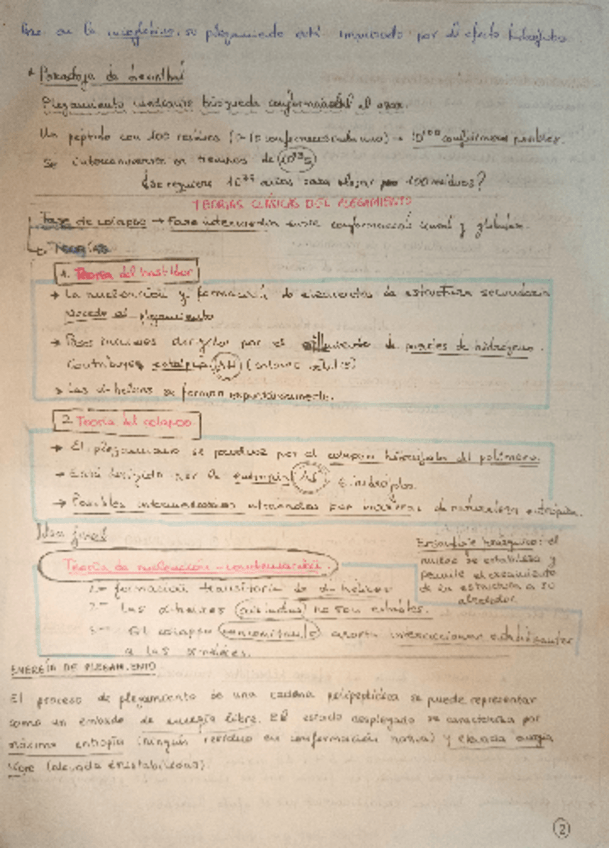 en la mioglobina, su plegamiento está impulsado por el efecto hidrófobo.
* Paradoja de Levinthal
Plegamiento mediante búsqueda conformacional al azar.
Un péptido con 100 residuos → 10¹⁰⁰ conformaciones posibles.
Se interconvierten en tiempos de
¿Se requiere años para plegar 100 residuos?
TEORÍAS CLÁSICAS DEL PLEGAMIENTO
Fase de colapso → Fase intermedia entre conformación y globular.
Teorías
1. Teoría del bastidor
→ La nucleación y formación de elementos de estructura secundaria
precede al plegamiento
→ Pasos iniciales dirigidos por el de puentes de hidrógeno.
Contribuye entalpía ΔH
→ Las α-hélices se forman espontáneamente.
2. Teoría del colapso
→ El plegamiento se produce por el colapso hidrófobo del polímero.
→ Está dirigido por la entropía ΔS
→ Posibles intermediarios de naturaleza entrópica.
Idea final
Teoría de nucleación - condensación
1.- formación transitoria de α-hélices
2.- Las α-hélices aisladas no son estables.
3.- El colapso concomitante aporta interacciones estabilizantes
a las α-hélices.
Ensamblaje jerárquico: el
núcleo se estabiliza y
permite el crecimiento
de la estructura a su
alrededor.
ENERGÍA DE PLEGAMIENTO
El proceso de plegamiento de una cadena polipeptídica se puede representar
como un embudo de energía libre. El estado desplegado se caracteriza por
máxima entropía (ningún residuo en conformación nativa) y elevada energía
libre (elevada inestabilidad).
2